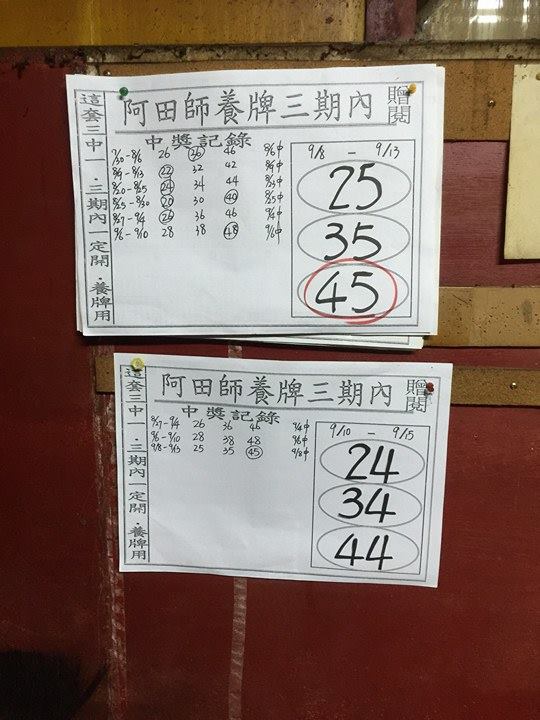 阿田師養牌三期內
贈閱
這套三中一．三期內一定開．養牌用
中獎記錄
7/30-8/6 26 36 46 8/6中
8/9-8/13 22 32 42 8/9中
8/20-8/25 24 34 44 8/23中
8/25-8/30 20 30 40 8/25中
8/27-9/4 26 36 46 9/4中
9/6-9/10 28 38 48 9/6中
9/8 - 9/13
25
35
45
阿田師養牌三期內
贈閱
這套三中一．三期內一定開．養牌用
中獎記錄
8/27-9/4 26 36 46 9/4中
9/6-9/10 28 38 48 9/6中
9/8-9/13 25 35 45 9/8中
9/10 - 9/15
24
34
44